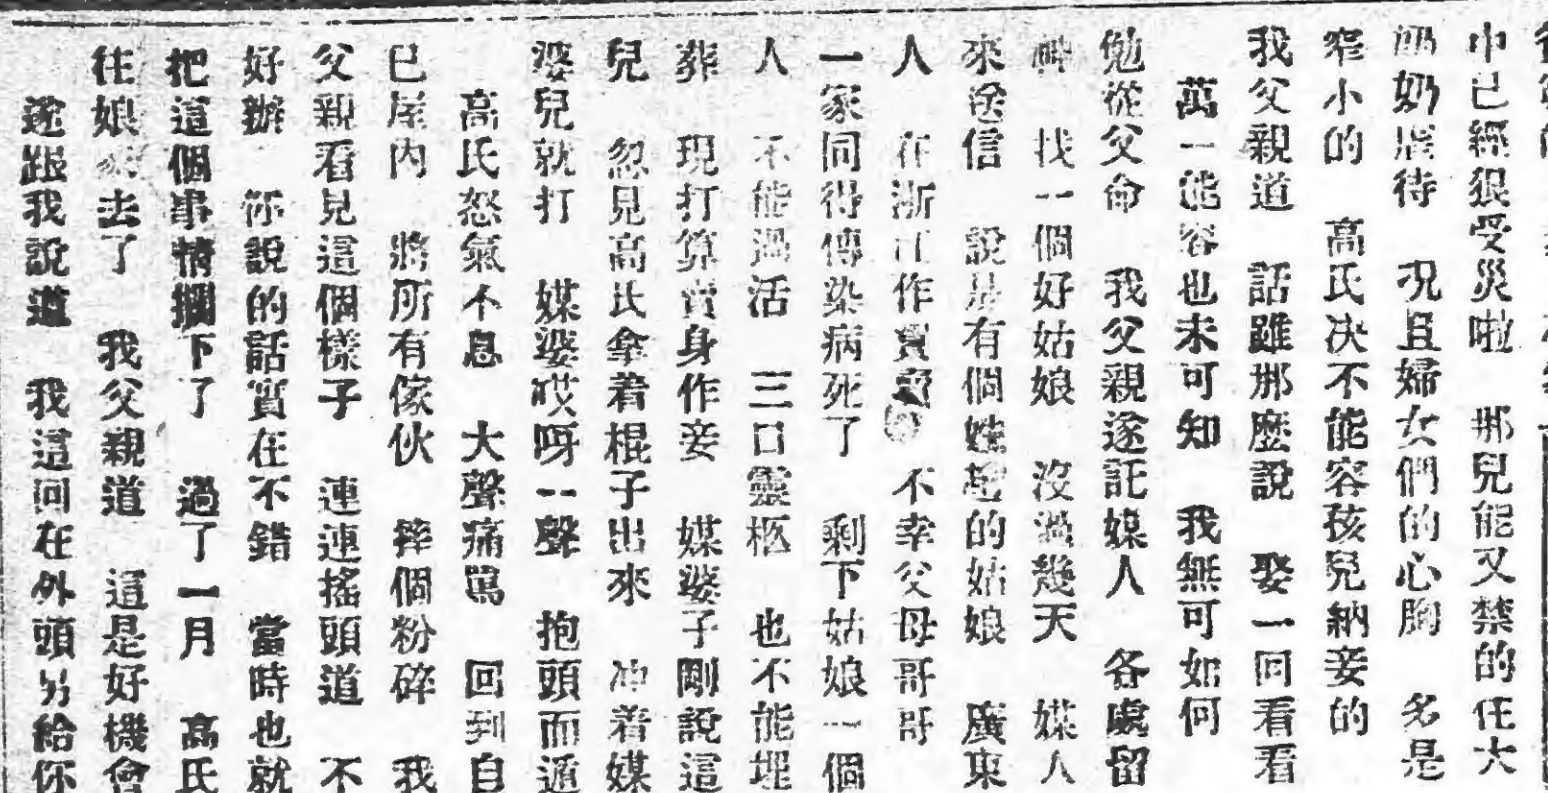 中已經狠受災啦　那兒能又禁的任大
奶奶虐待　况且婦女們的心胸　多是
窄小的　高氏决不能容孩兒納妾的
我父親道　話雖那麽說　娶一回看看
萬一能容也未可知　我無可如何
勉從父命　我父親遂託媒人　各處留
神　找一個好姑娘　沒過幾天　媒人
來送信　說是有個姓的姑娘　廣東
人　在浙江作買賣　不幸父母哥哥
一家同得傳染病死了　剩下姑娘一個
人　不能過活　三口靈柩　也不能埋
葬　現打算賣身作妾　媒婆子剛說這
兒　忽見高氏拿着棍子出來　冲着媒
婆兒就打　媒婆哎呀一聲　抱頭而遁
高氏怒氣不息　大聲痛駡　回到自
已屋內　將所有傢伙　摔個粉碎　我
父親看見這個樣子　連連搖頭道　不
好辦　你說的話實在不錯　當時也就
把這個事情擱下了　過了一月　高氏
往娘家去了　我父親道　這是好機會
遂跟我說道　我這回在外頭另給你